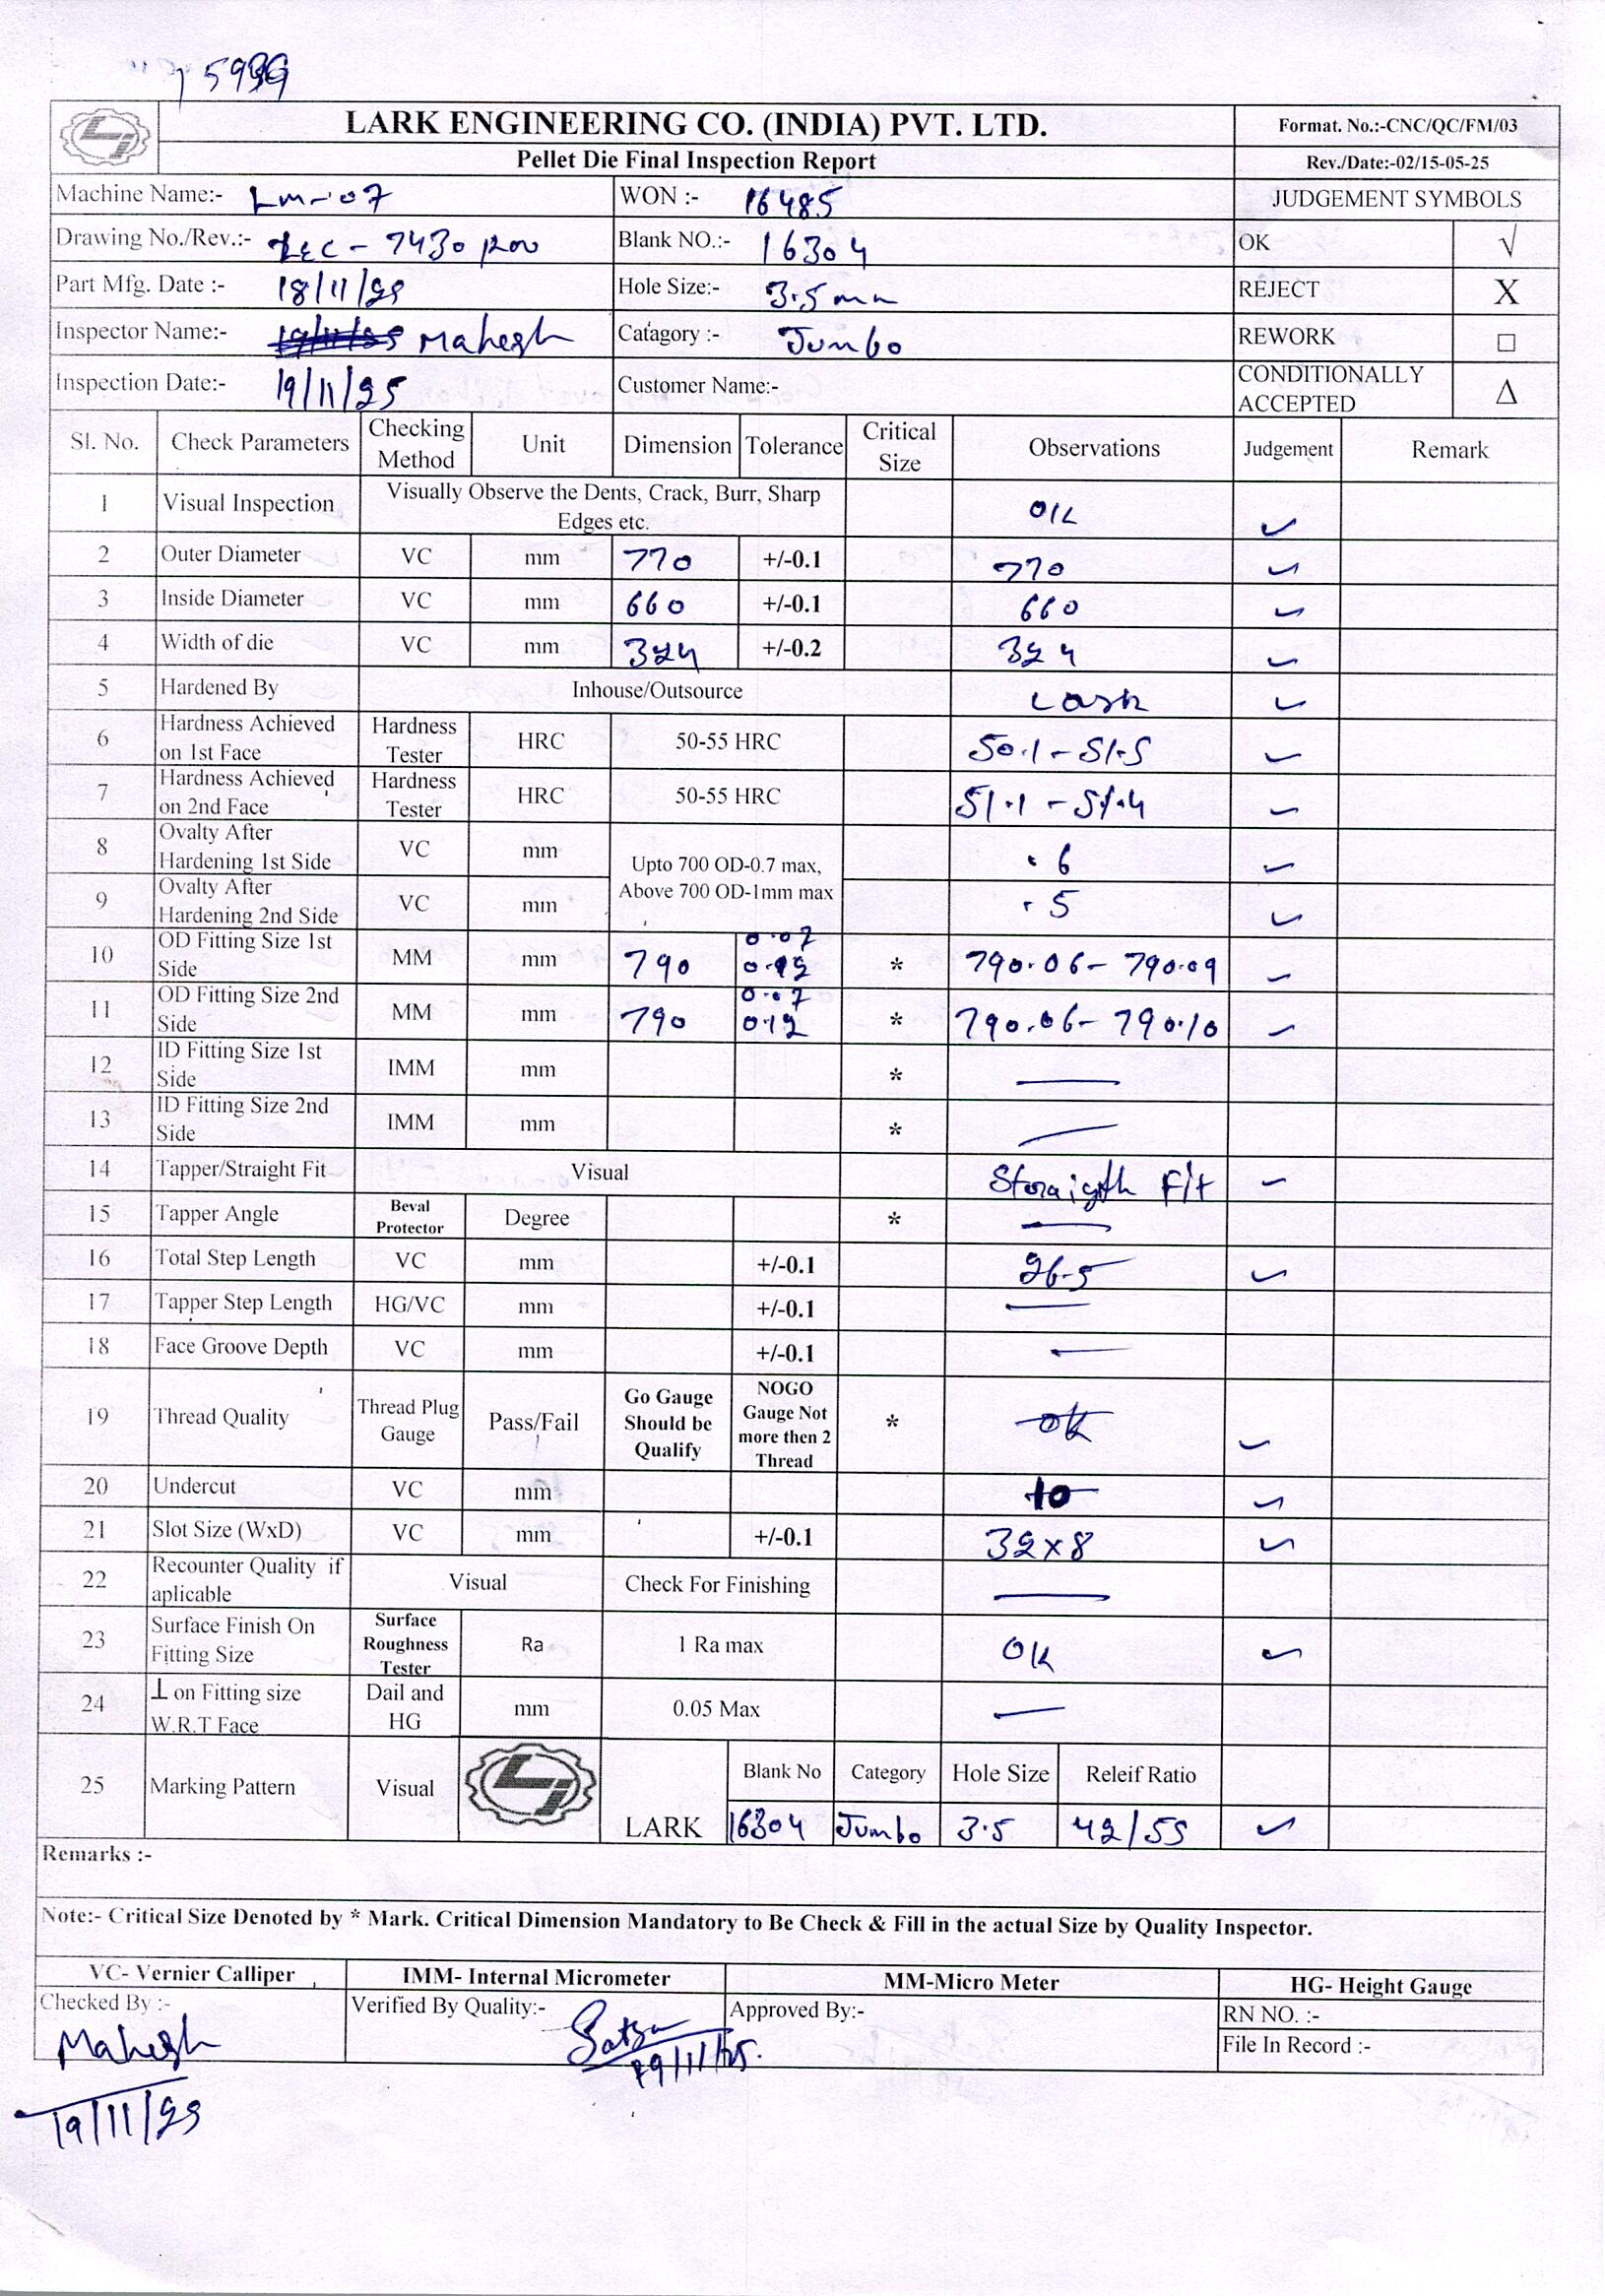 15939
LARK ENGINEERING CO. (INDIA) PVT. LTD.
Format. No.:-CNC/QC/FM/03
Pellet Die Final Inspection Report
Rev./Date:-02/15-05-25
Machine Name:- Lm-07 WON :- 16485 JUDGEMENT SYMBOLS
Drawing No./Rev.:- LEC-7430 Blank NO.:- 16304 OK √
Part Mfg. Date :- 18/11/25 Hole Size:- 3.5mm REJECT X
Inspector Name:- Mahesh Catagory :- Jumbo REWORK □
Inspection Date:- 19/11/25 Customer Name:- CONDITIONALLY ACCEPTED Δ
Sl. No. Check Parameters Checking Method Unit Dimension Tolerance Critical Size Observations Judgement Remark
1 Visual Inspection Visually Observe the Dents, Crack, Burr, Sharp Edges etc. OK ✓
2 Outer Diameter VC mm 770 +/-0.1 770 ✓
3 Inside Diameter VC mm 660 +/-0.1 660 ✓
4 Width of die VC mm 324 +/-0.2 324 ✓
5 Hardened By Inhouse/Outsource Lark ✓
6 Hardness Achieved on 1st Face Hardness Tester HRC 50-55 HRC 50.1-51.5 ✓
7 Hardness Achieved on 2nd Face Hardness Tester HRC 50-55 HRC 51.1-51.4 ✓
8 Ovalty After Hardening 1st Side VC mm Upto 700 OD-0.7 max, Above 700 OD-1mm max .6 ✓
9 Ovalty After Hardening 2nd Side VC mm .5 ✓
10 OD Fitting Size 1st Side MM mm 790 0.07 0.12 * 790.06-790.09 ✓
11 OD Fitting Size 2nd Side MM mm 790 0.07 0.12 * 790.06-790.10 ✓
12 ID Fitting Size 1st Side IMM mm * —
13 ID Fitting Size 2nd Side IMM mm * —
14 Tapper/Straight Fit Visual Straigth Fit ✓
15 Tapper Angle Beval Protector Degree * —
16 Total Step Length VC mm +/-0.1 26.5 ✓
17 Tapper Step Length HG/VC mm +/-0.1 —
18 Face Groove Depth VC mm +/-0.1 —
19 Thread Quality Thread Plug Gauge Pass/Fail Go Gauge Should be Qualify NOGO Gauge Not more then 2 Thread * OK ✓
20 Undercut VC mm 10 ✓
21 Slot Size (WxD) VC mm +/-0.1 32x8 ✓
22 Recounter Quality if aplicable Visual Check For Finishing —
23 Surface Finish On Fitting Size Surface Roughness Tester Ra 1 Ra max OK ✓
24 ⊥ on Fitting size W.R.T Face Dail and HG mm 0.05 Max —
25 Marking Pattern Visual LARK Blank No Category Hole Size Releif Ratio
16304 Jumbo 3.5 42/55 ✓
Remarks :-
Note:- Critical Size Denoted by * Mark. Critical Dimension Mandatory to Be Check & Fill in the actual Size by Quality Inspector.
VC- Vernier Calliper IMM- Internal Micrometer MM-Micro Meter HG- Height Gauge
Checked By :- Verified By Quality:- Approved By:- RN NO. :-
Mahesh 19/11/25 File In Record :-
19/11/25